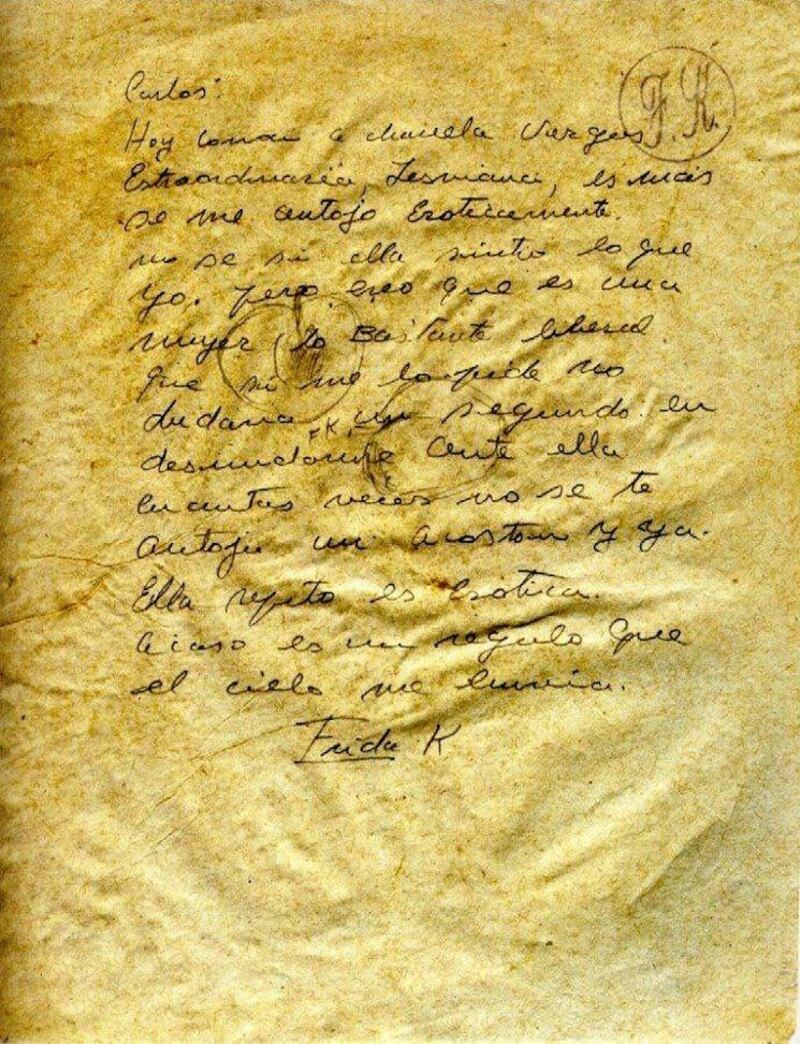 Carlos:
F. K.
Hoy conocí a chavela Vargas.
Extraordinaria, Lesviana, es más
se me antojo Eroticamente.
no se si ella sintio lo que
yo. pero creo que es una
mujer lo Bastante liberal
que si me lo pide no
dudaria un segundo en
F.K.
desnudarme ante ella
cuantas veces no se te
antoja un acoston y ya.
Ella repito es erotica.
acaso es un regalo que
el cielo me envia.
Frida K